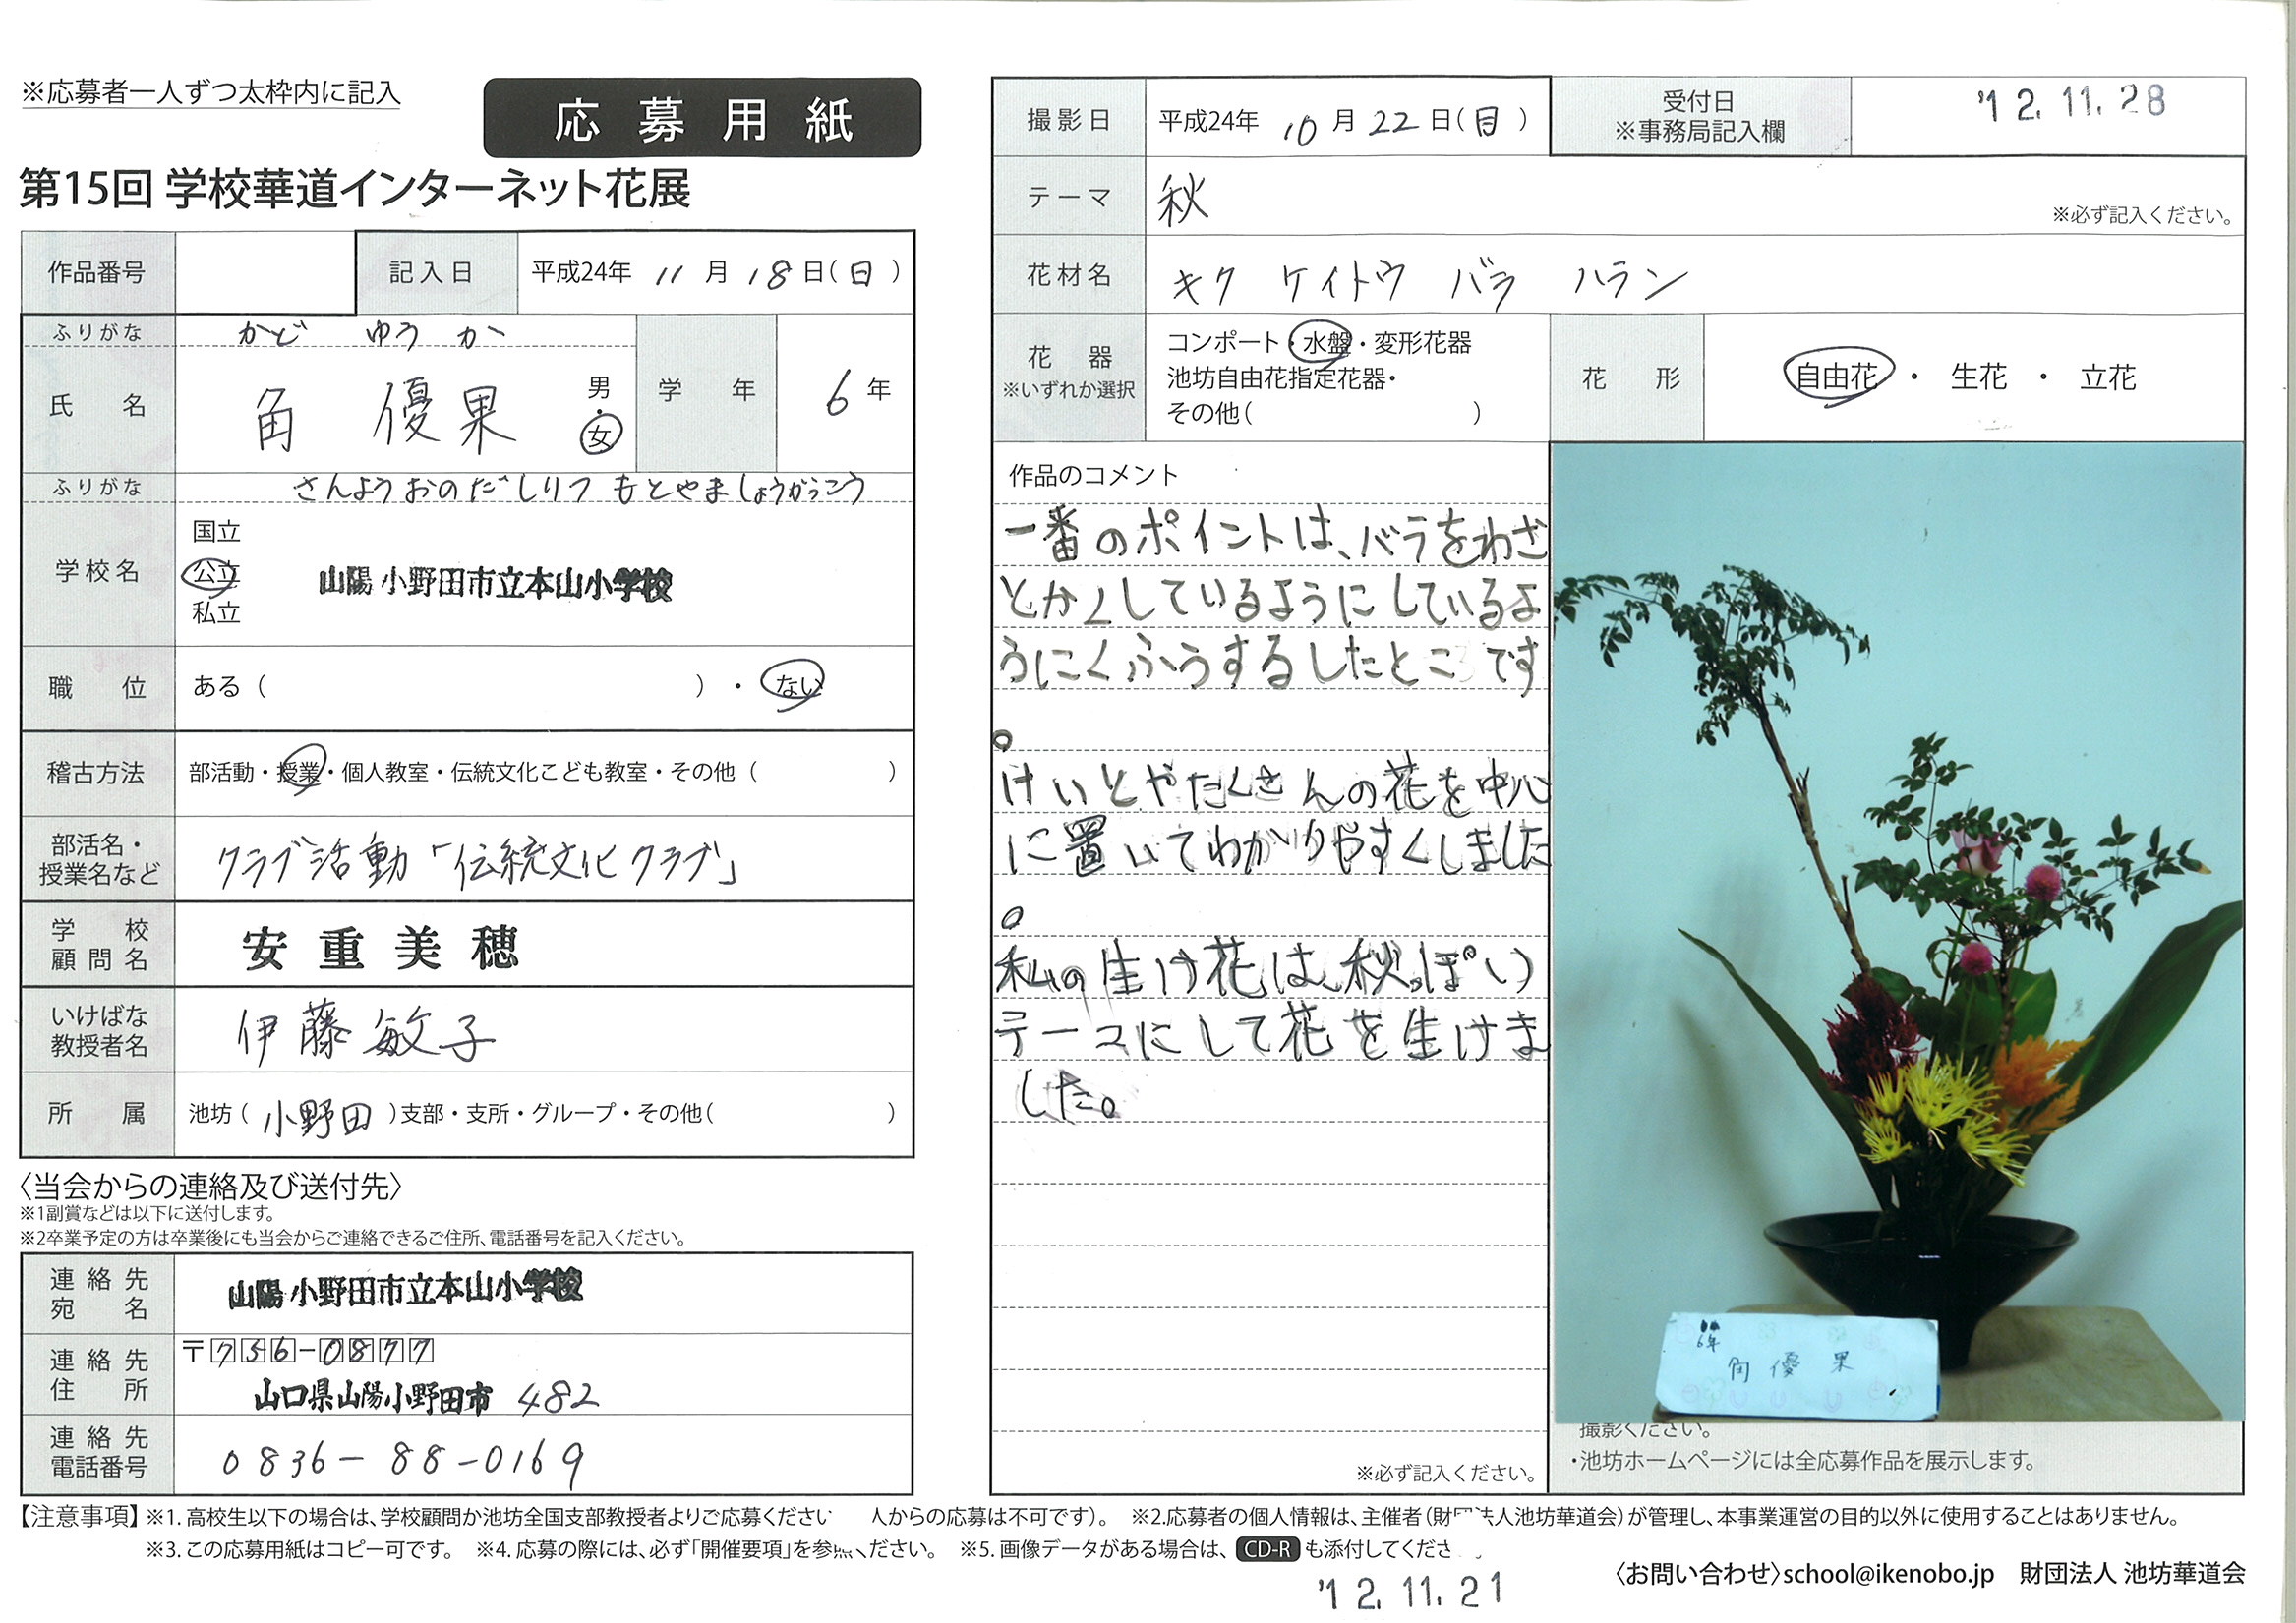 ※応募者一人ずつ太枠内に記入
応募用紙
第15回 学校華道インターネット花展
作品番号
記入日 平成24年 11月 18日(日)
ふりがな かど ゆうか
氏名 角 優果 男・女
学年 6年
ふりがな さんようおのだしりつ もとやましょうがっこう
学校名 国立
公立 山陽小野田市立本山小学校
私立
職位 ある( )・ない
稽古方法 部活動・授業・個人教室・伝統文化こども教室・その他( )
部活名・
授業名など クラブ活動「伝統文化クラブ」
学校
顧問名 安重美穂
いけばな
教授者名 伊藤敏子
所属 池坊(小野田)支部・支所・グループ・その他( )
〈当会からの連絡及び送付先〉
※1副賞などは以下に送付します。
※2卒業予定の方は卒業後にも当会からご連絡できるご住所、電話番号を記入ください。
連絡先
宛名 山陽小野田市立本山小学校
連絡先
住所 〒756-0877
山口県山陽小野田市 482
連絡先
電話番号 0836-88-0169
撮影日 平成24年 10月 22日(日)
受付日
※事務局記入欄 '12.11.28
テーマ 秋
※必ず記入ください。
花材名 キク ケイトウ バラ ハラン
花器
※いずれか選択
コンポート・水盤・変形花器
池坊自由花指定花器・
その他( )
花形 自由花 ・ 生花 ・ 立花
作品のコメント
一番のポイントは、バラをわざ
とかくしているようにしているよ
うにくふうするしたとこ です
。
けいとやたくさんの花を中心
に置いてわかりやすくしました
。
私の生け花は、秋っぽい
テーマにして花を生けま
した。
※必ず記入ください。
6年
角 優 果
撮影ください。
・池坊ホームページには全応募作品を展示します。
【注意事項】※1. 高校生以下の場合は、学校顧問か池坊全国支部教授者よりご応募ください 人からの応募は不可です)。 ※2.応募者の個人情報は、主催者(財団法人池坊華道会)が管理し、本事業運営の目的以外に使用することはありません。
※3. この応募用紙はコピー可です。 ※4. 応募の際には、必ず「開催要項」を参照ください。 ※5. 画像データがある場合は、 CD-R も添付してくださ
〈お問い合わせ〉school@ikenobo.jp 財団法人 池坊華道会
'12.11.21